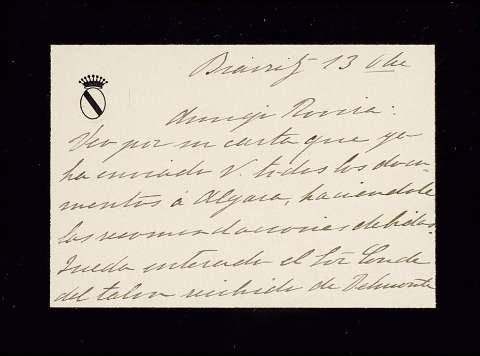 Biarritz 13 Obre
Amigo Rovira:
Veo por su carta que ya
ha enviado V. todos los docu-
mentos á Algara, haciendole
las recomendaciones debidas.
Queda enterado el Sor Conde
del talon recibido de Delmonte